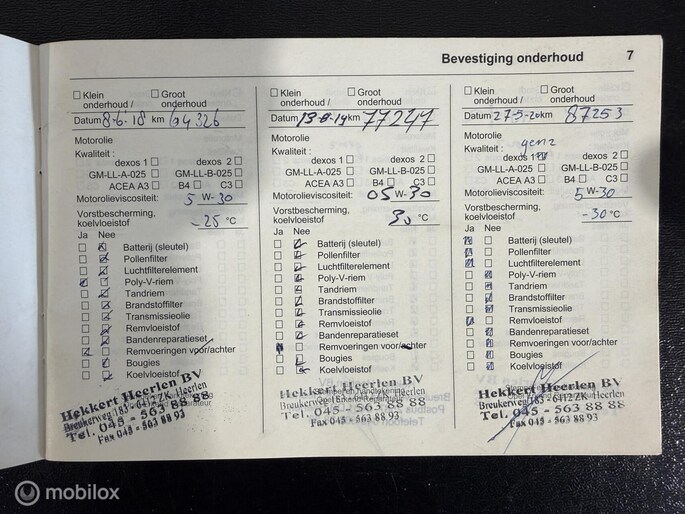 Bevestiging onderhoud 7
Klein onderhoud / Groot onderhoud
Datum 8-6-18 km 64326
Motorolie
Kwaliteit :
dexos 1 dexos 2
GM-LL-A-025 GM-LL-B-025
ACEA A3 B4 C3
Motorolieviscositeit: 5 W- 30
Vorstbescherming,
koelvloeistof -25 °C
Ja Nee
Batterij (sleutel)
Pollenfilter
Luchtfilterelement
Poly-V-riem
Tandriem
Brandstoffilter
Transmissieolie
Remvloeistof
Bandenreparatieset
Remvoeringen voor/achter
Bougies
Koelvloeistof
Hekkert Heerlen BV
Breukerweg 183 - 6412 ZK Heerlen
Tel. 045 - 563 88 88
Fax 045 - 563 88 93
Klein onderhoud / Groot onderhoud
Datum km 77247
Motorolie
Kwaliteit :
dexos 1 dexos 2
GM-LL-A-025 GM-LL-B-025
ACEA A3 B4 C3
Motorolieviscositeit: 05 W- 30
Vorstbescherming,
koelvloeistof 30 °C
Ja Nee
Batterij (sleutel)
Pollenfilter
Luchtfilterelement
Poly-V-riem
Tandriem
Brandstoffilter
Transmissieolie
Remvloeistof
Bandenreparatieset
Remvoeringen voor/achter
Bougies
Koelvloeistof
Hekkert Heerlen BV
Breukerweg 183 - 6412 ZK Heerlen
Tel. 045 - 563 88 88
Fax 045 - 563 88 93
Klein onderhoud / Groot onderhoud
Datum 27-5-20 km 87253
Motorolie
Kwaliteit :
dexos 1 dexos 2
GM-LL-A-025 GM-LL-B-025
ACEA A3 B4 C3
Motorolieviscositeit: 5 W- 30
Vorstbescherming,
koelvloeistof -30 °C
Ja Nee
Batterij (sleutel)
Pollenfilter
Luchtfilterelement
Poly-V-riem
Tandriem
Brandstoffilter
Transmissieolie
Remvloeistof
Bandenreparatieset
Remvoeringen voor/achter
Bougies
Koelvloeistof
Hekkert Heerlen BV
Breukerweg 183 - 6412 ZK Heerlen
Tel. 045 - 563 88 88
Fax 045 - 563 88 93
mobilox